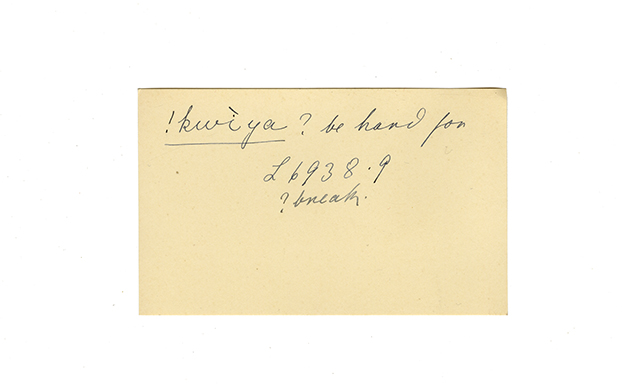 !kwì ya ? be hard for
L 6938.9
? break.